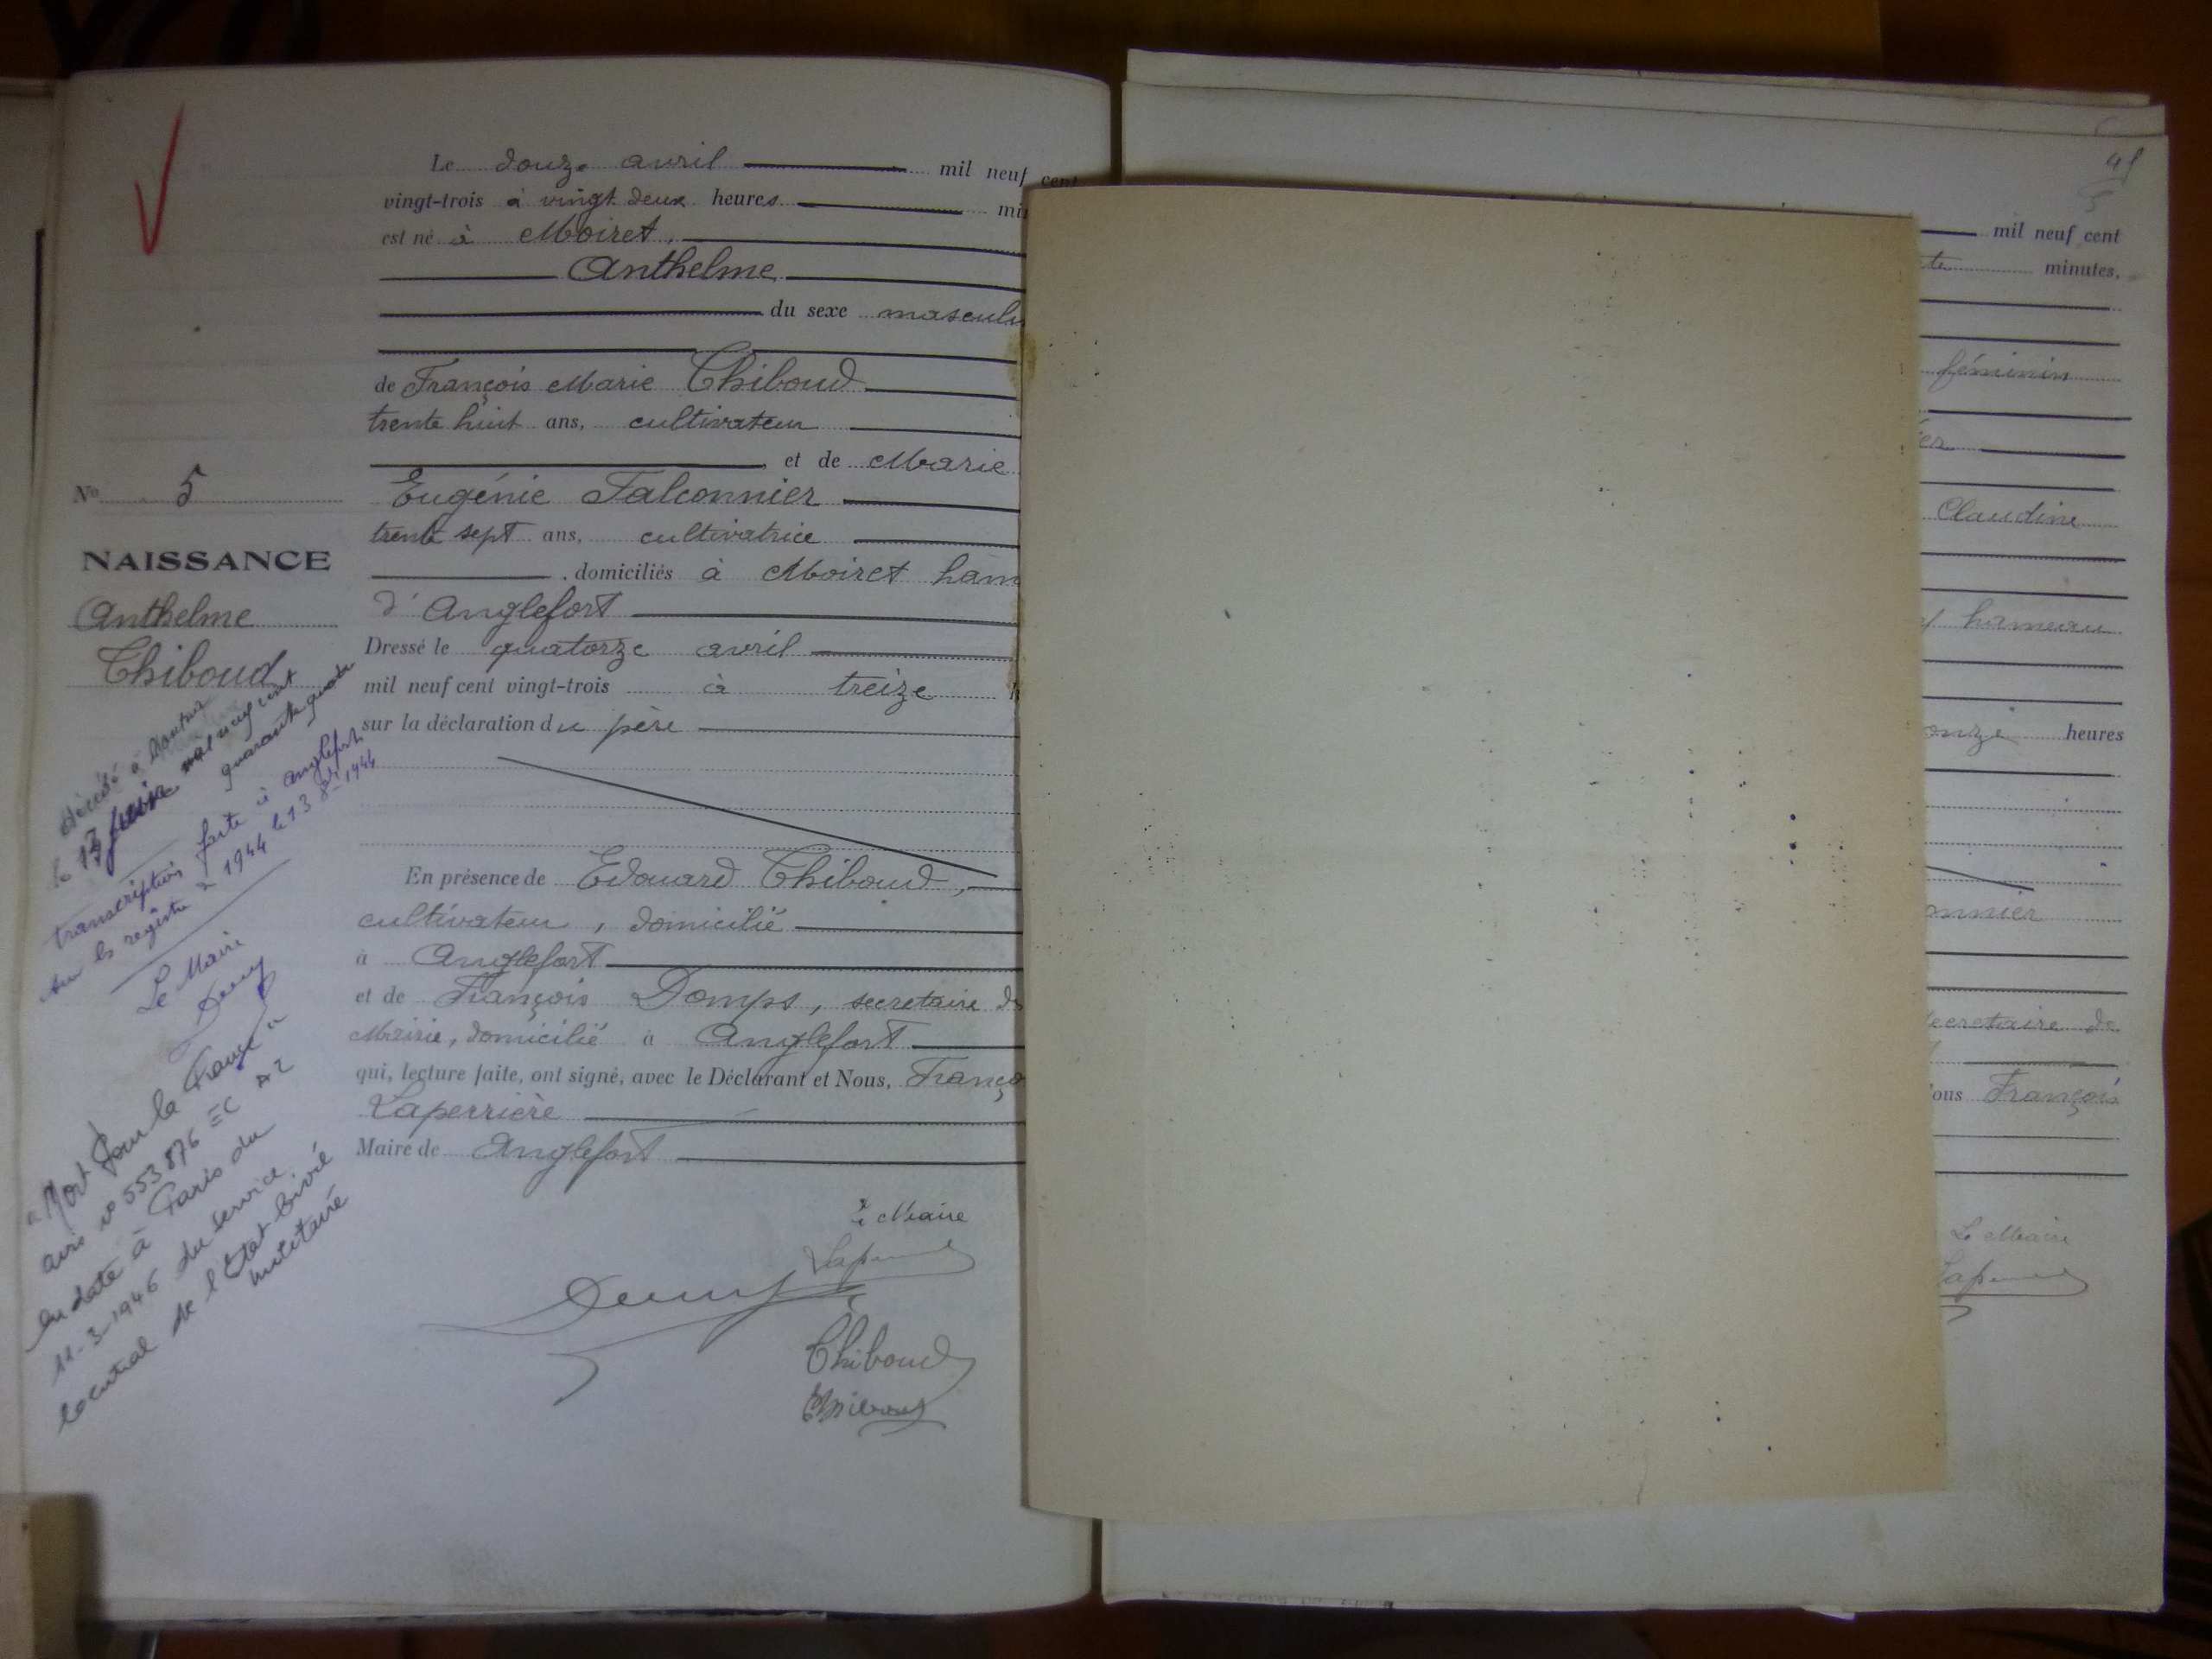 Le douze avril mil neuf cent
vingt-trois à vingt deux heures
est né à Moiret,
Anthelme
du sexe masculi
de François Marie Thiboud
trente huit ans, cultivateur
, et de Marie
Eugénie Falconnier
trente sept ans, cultivatrice
, domiciliés à Moiret ham
d'Anglefort
Dressé le quatorze avril
mil neuf cent vingt-trois à treize h
sur la déclaration du père
En présence de Edouard Thiboud,
cultivateur, domicilié
à Anglefort
et de François Domps, secretaire de
Mairie, domicilié à Anglefort
qui, lecture faite, ont signé, avec le Déclarant et Nous, Franço
Laperrière
Maire de Anglefort
Le Maire
Thiboud
Thiboud
No 5
NAISSANCE
Anthelme
Thiboud
Décédé à
le mil neuf cent
quarante quatre
transcription faite à Anglefort
sur les registres de 1944 le 13 8bre 1944
Le Maire
"Mort pour la France"
avis no 553876 EC A2
en date à Paris du
11-3-1946 du service
central de l'Etat Civil
militaire
mil neuf cent
minutes,
féminin
Claudine
hameau
onze heures
onnier
secretaire de
ous François
Le Maire